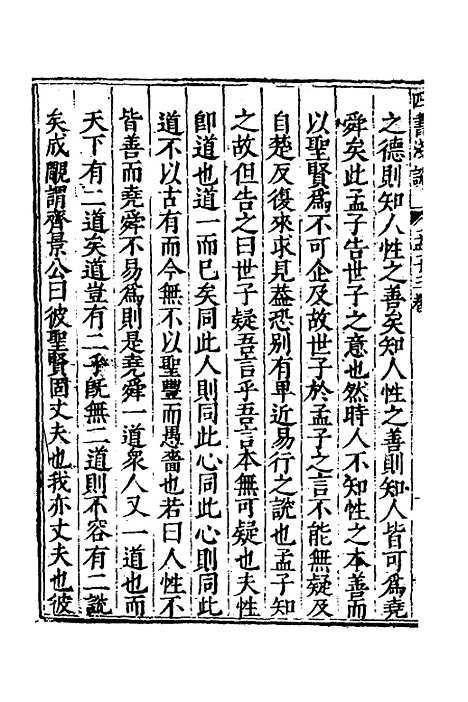 之德則知人性之善矣知人性之善則知人皆可爲堯
舜矣此孟子告世子之意也然時人不知性之本善而
以聖賢爲不可企及故世子於孟子之言不能無疑及
自楚反復來求見蓋恐別有卑近易行之說也孟子知
之故但告之曰世子疑吾言乎吾言本無可疑也夫性
卽道也道一而已矣同此人則同此心同此心則同此
道不以古有而今無不以聖豐而愚嗇也若曰人性不
皆善而堯舜不易爲則是堯舜一道衆人又一道也而
天下有二道矣道豈有二乎旣無二道則不容有二說
矣成覸謂齊景公曰彼聖賢固丈夫也我亦丈夫也彼